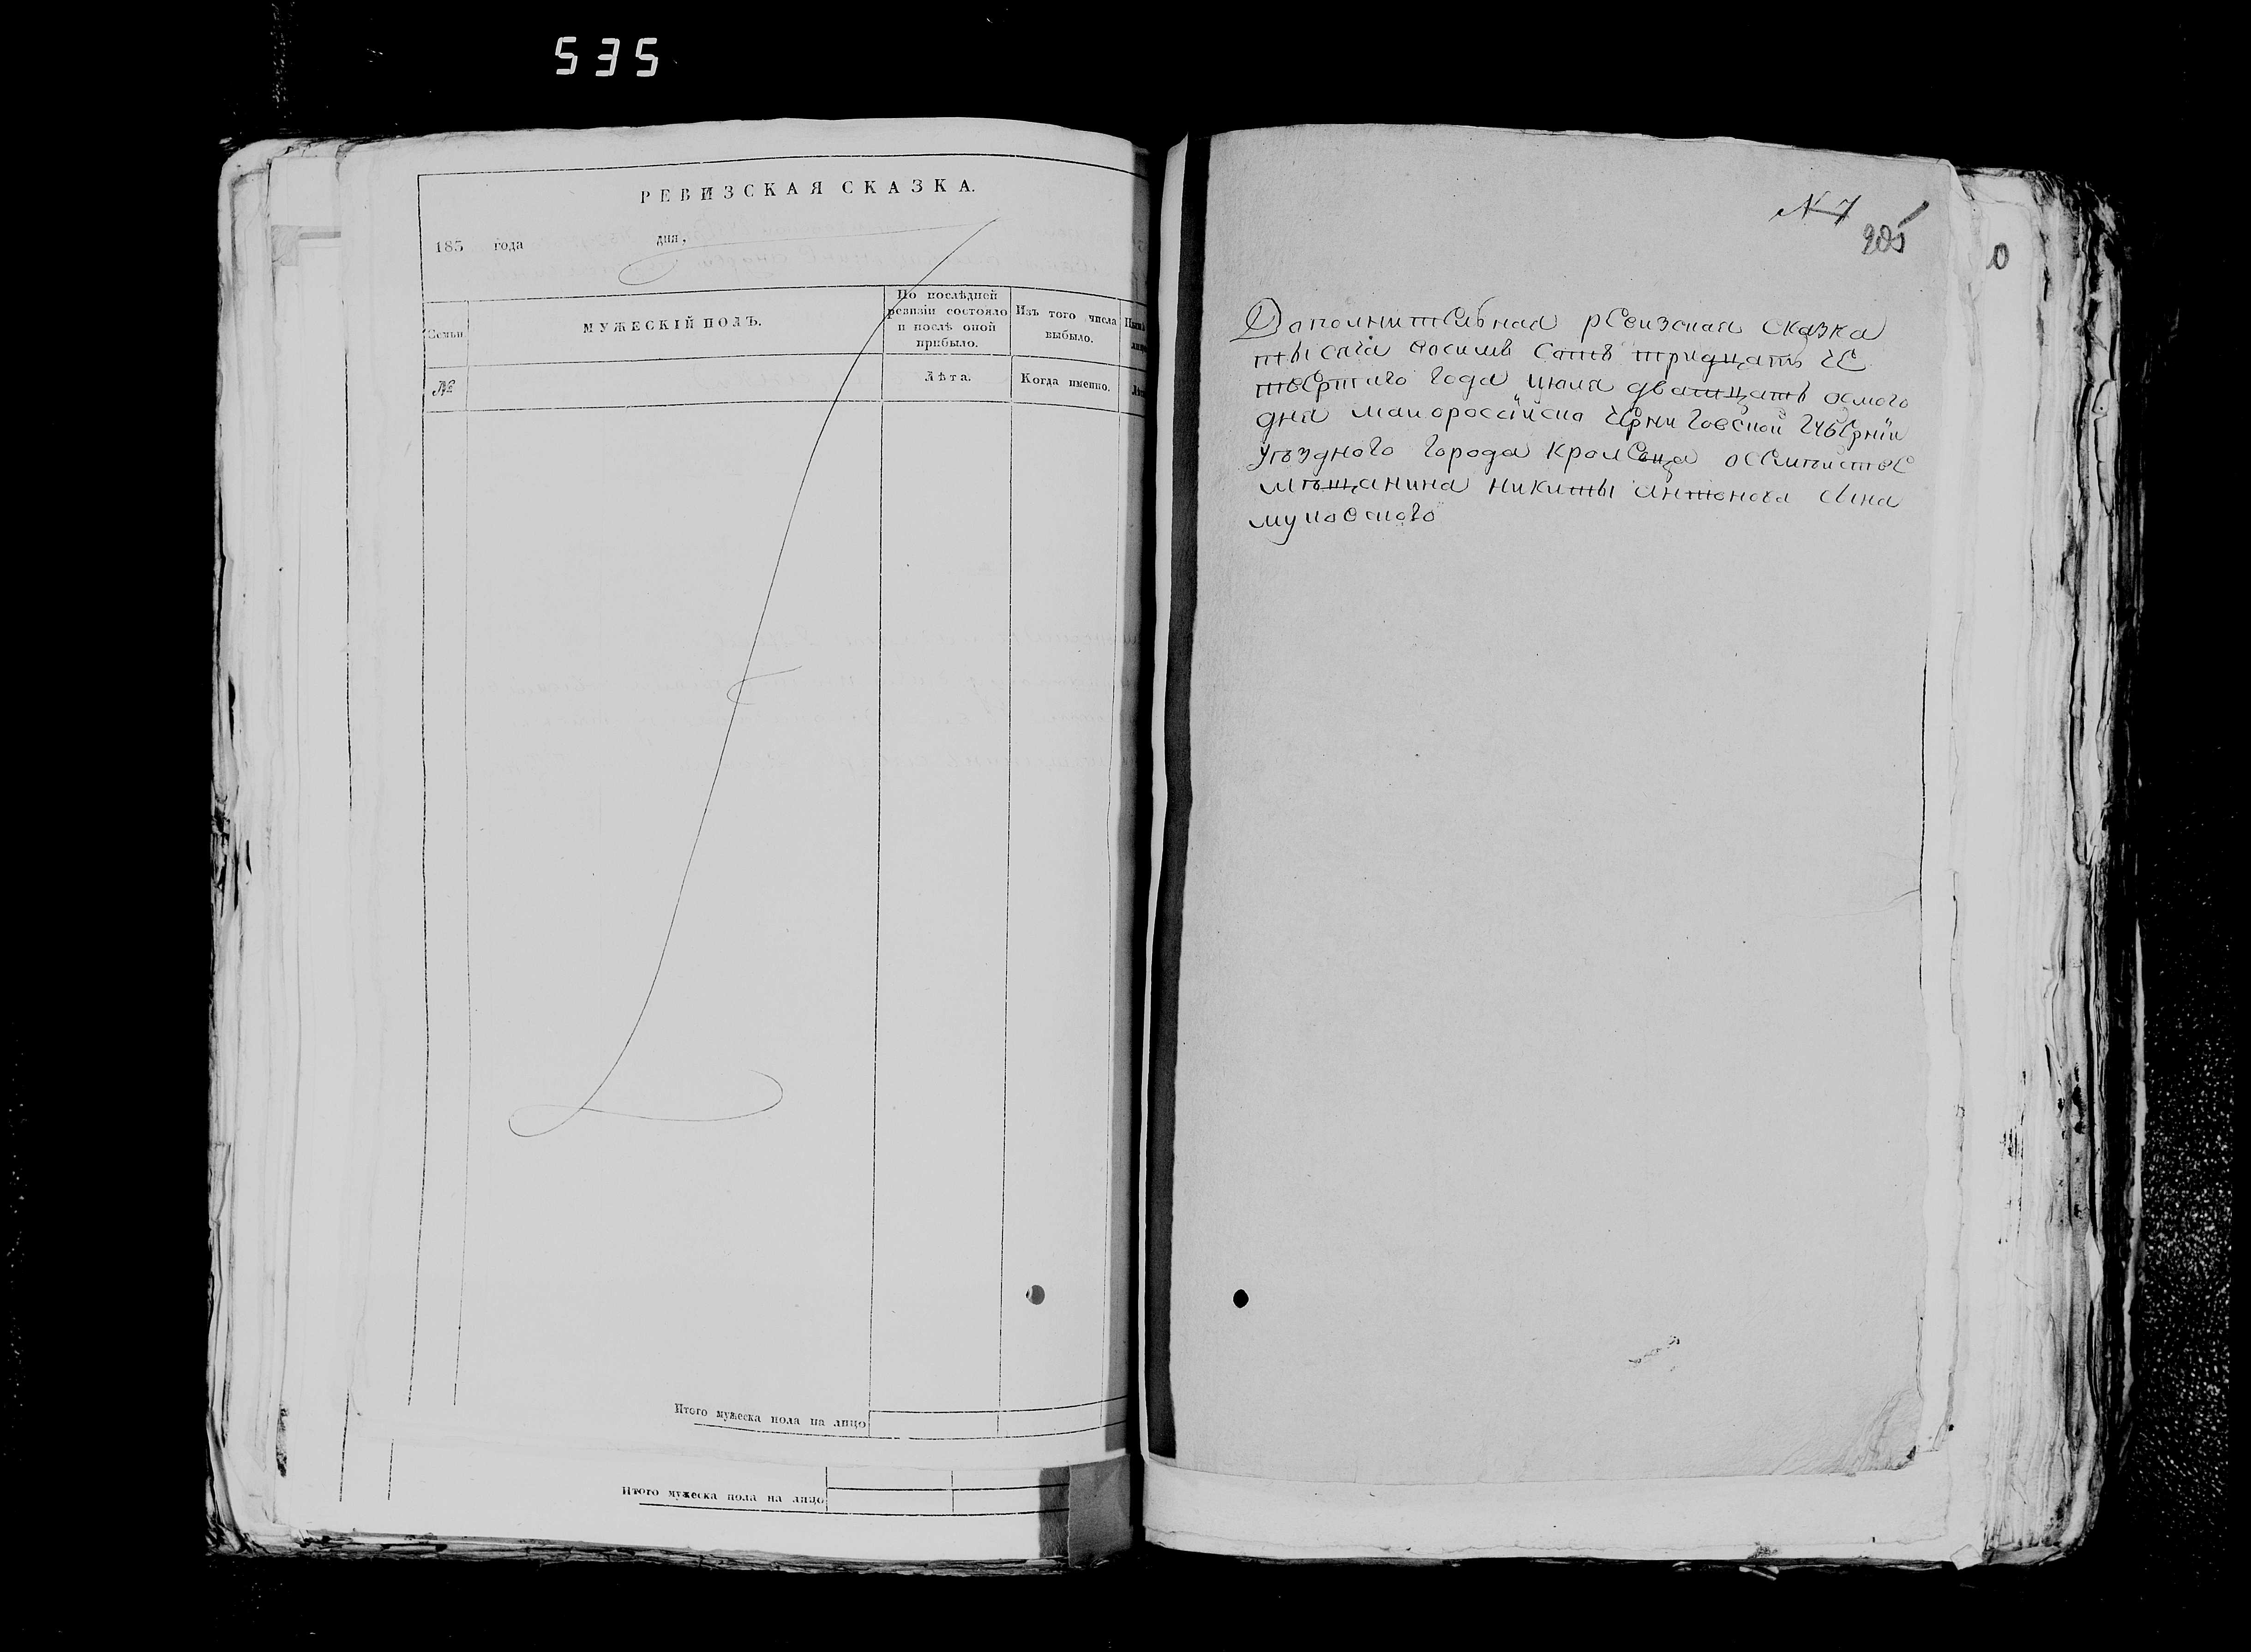 535
РЕВИЗСКАЯ СКАЗКА.
185 года дня,
Семьи
МУЖЕСКІЙ ПОЛЪ.
По послѣдней ревизіи состояло и послѣ оной прибыло.
Изъ того числа выбыло.
№
Лѣта.
Когда именно.
Итого мужеска пола на лицо
Итого мужеска пола на лицо
N 7
205
0
Дополнителная ревизская сказка
тысяча восимъ сотъ тридцать че
твертаго года июля дватцать осмого
дня малороссійско Черниговской Губерніи
уѣздного города Кролевца о семѣйстве
мѣщанина Никиты Антонова сина